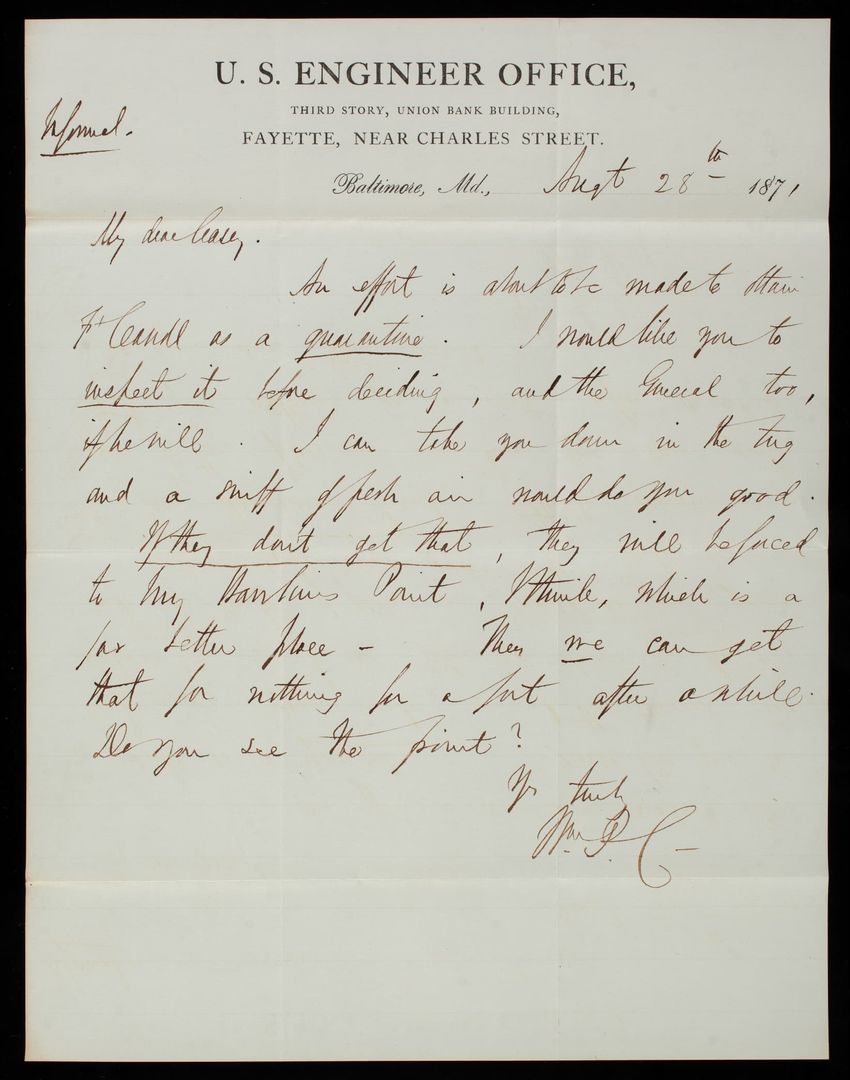 U. S. ENGINEER OFFICE,
THIRD STORY, UNION BANK BUILDING,
FAYETTE, NEAR CHARLES STREET.
Informal.
Baltimore, Md., Augt 28th 1871
My dear Casey.
An effort is about to be made to obtain
Ft Carroll as a quarantine. I would like you to
inspect it before deciding, and the General too,
if he will. I can take you down in the tug
and a sniff of fresh air would do you good.
If they don't get that, they will be forced
to my Hawkins Point, which is a
far better place - Then we can get
that for nothing for a fort after a while.
Do you see the point?
Yrs truly
Wm. P. C-